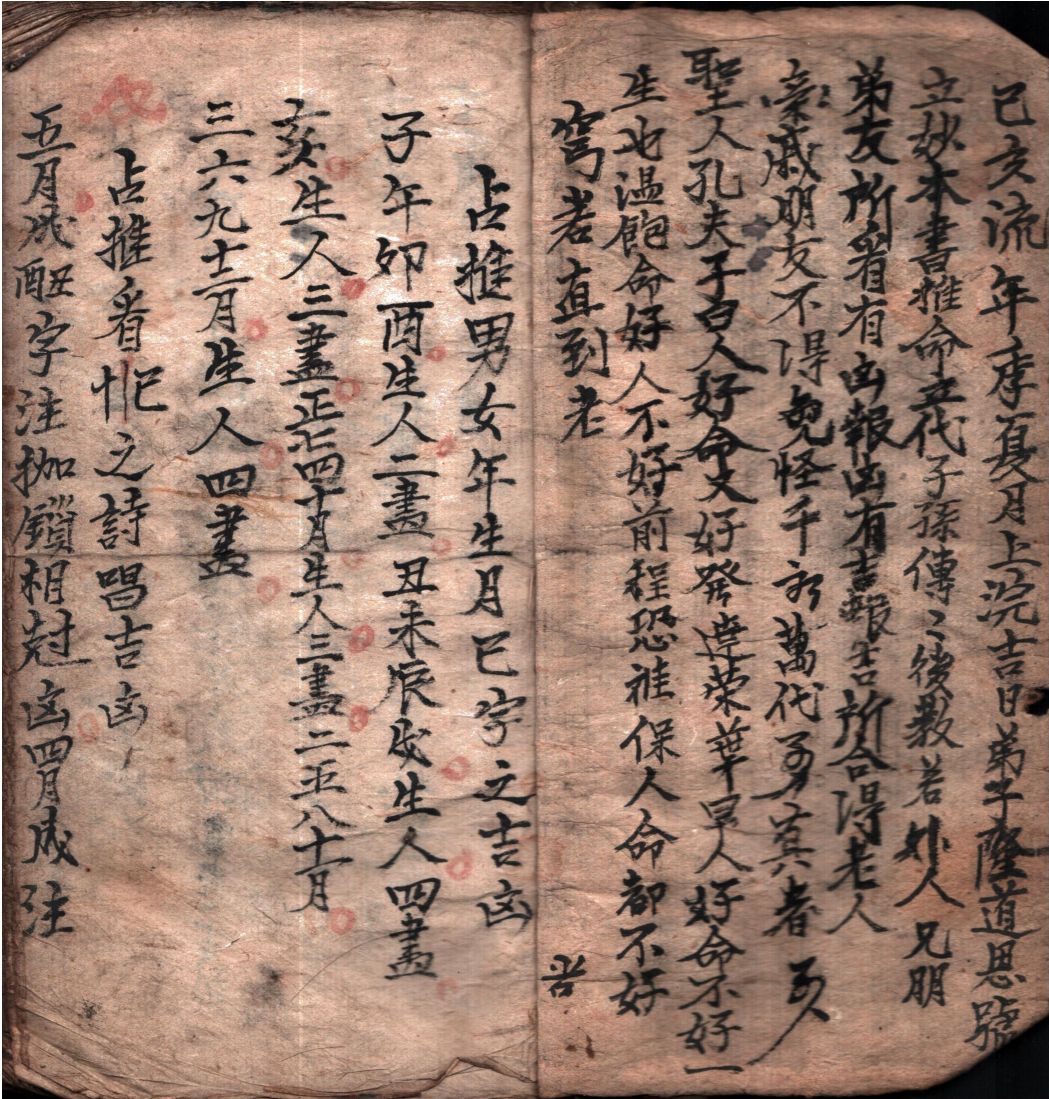 己亥流年季夏月上浣吉日弟子隆道恩號
立妙本書推命五代子孫傳〻後教若妙人兄明
弟友所看有凶報凶有吉報吉所合得老人
亲戚朋友不得免怪千秋萬代子孫真者
聖人孔夫子白人好命又好發達荣華早人好命不好一
生也温飽命好人不好前程恐祖保人命都不好
穹若直到老
占推男女年生月巳字之吉凶
子午卯酉生人二晝丑未辰戌生人四晝
亥生人三晝正七四十月生人三晝二五八十一月
三六九十二月生人四晝
占推看之詩唱吉凶
五月戌丑字注枷鎖相尅凶四月戌注